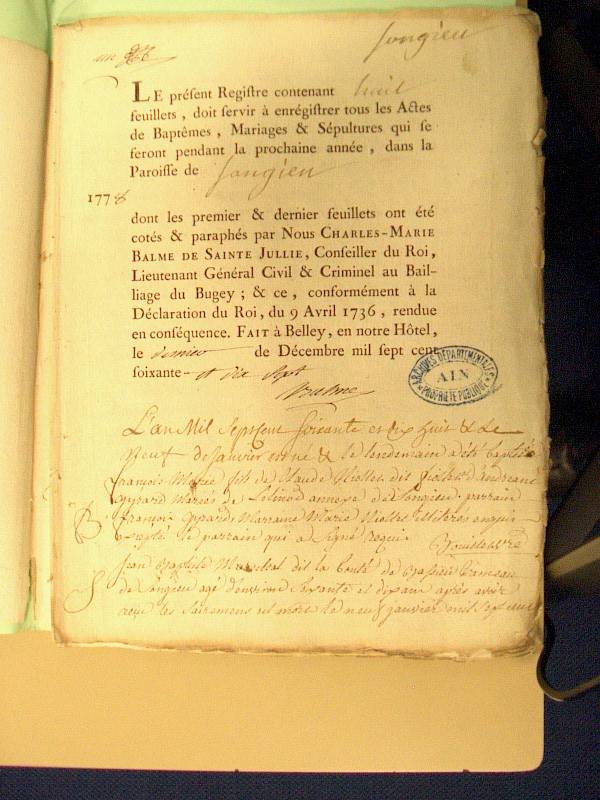 Songieu
LE préſent Regiſtre contenant huit
feuillets, doit ſervir à enrégiſtrer tous les Actes
de Baptêmes, Mariages & Sépultures qui ſe
feront pendant la prochaine année, dans la
Paroiſſe de Songieu
1778
dont les premier & dernier feuillets ont été
cotés & paraphés par Nous CHARLES-MARIE
BALME DE SAINTE JULLIE, Conſeiller du Roi,
Lieutenant Général Civil & Criminel au Bail-
liage du Bugey; & ce, conformément à la
Déclaration du Roi, du 9 Avril 1736, rendue
en conſéquence. FAIT à Belley, en notre Hôtel,
le dernier de Décembre mil ſept cent
ſoixante-et dix sept
Balme
ARCHIVES DÉPARTEMENTALES
AIN
PROPRIÉTÉ PUBLIQUE
L'an Mil Sept cent soixante et dix huit & Le
neuf de janvier est né & le lendemain a été baptisé
françois Marie fils de Claude
de Songieu parrain
françois Marraine Marie illiterés enquis
excepté le parrain qui a signé requis
B
Jean Baptiste dit la de
S
de Songieu agé d'environ soixante et dix ans après avoir
reçu les sacremens est mort le neuf janvier mil sept cent